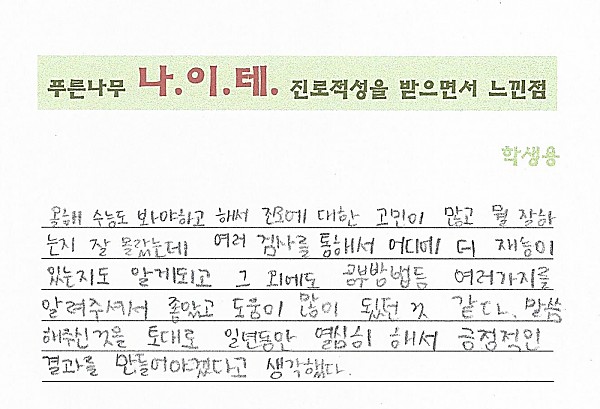 푸른나무 나.이.테. 진로적성을 받으면서 느낀점
학생용
올해 수능도 봐야하고 해서 진로에 대한 고민이 많고 뭘 잘하
는지 잘 몰랐는데 여러 검사를 통해서 어디에 더 재능이
있는지도 알게되고 그 외에도 공부방법등 여러가지를
알려주셔서 좋았고 도움이 많이 됬던 것 같다. 말씀
해주신것을 토대로 일년동안 열심히 해서 긍정적인
결과를 만들어야겠다고 생각했다.